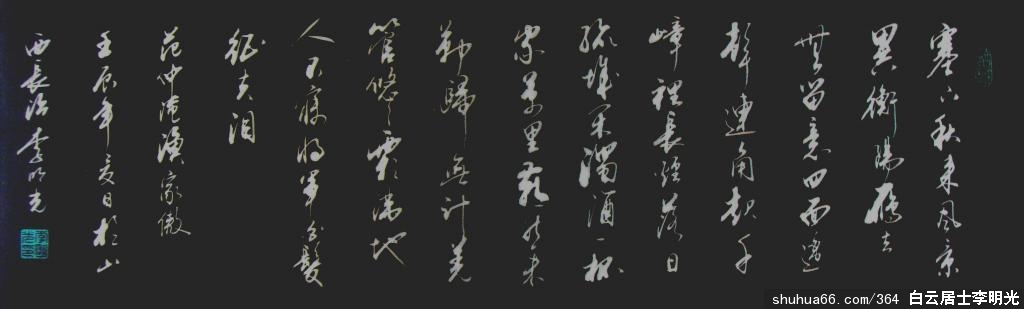 塞下秋来风京
異衡陽雁去
無留意四面邊
聲連角起千
嶂裡長煙落日
孤城闭濁酒一杯
家万里燕然未
勒歸無计羌
管悠悠霜满地
人不寐将軍白髮
征夫泪
范仲淹漁家傲
壬辰年夏日於山
西長治李明光
shuhua66.com/364 白云居士李明光